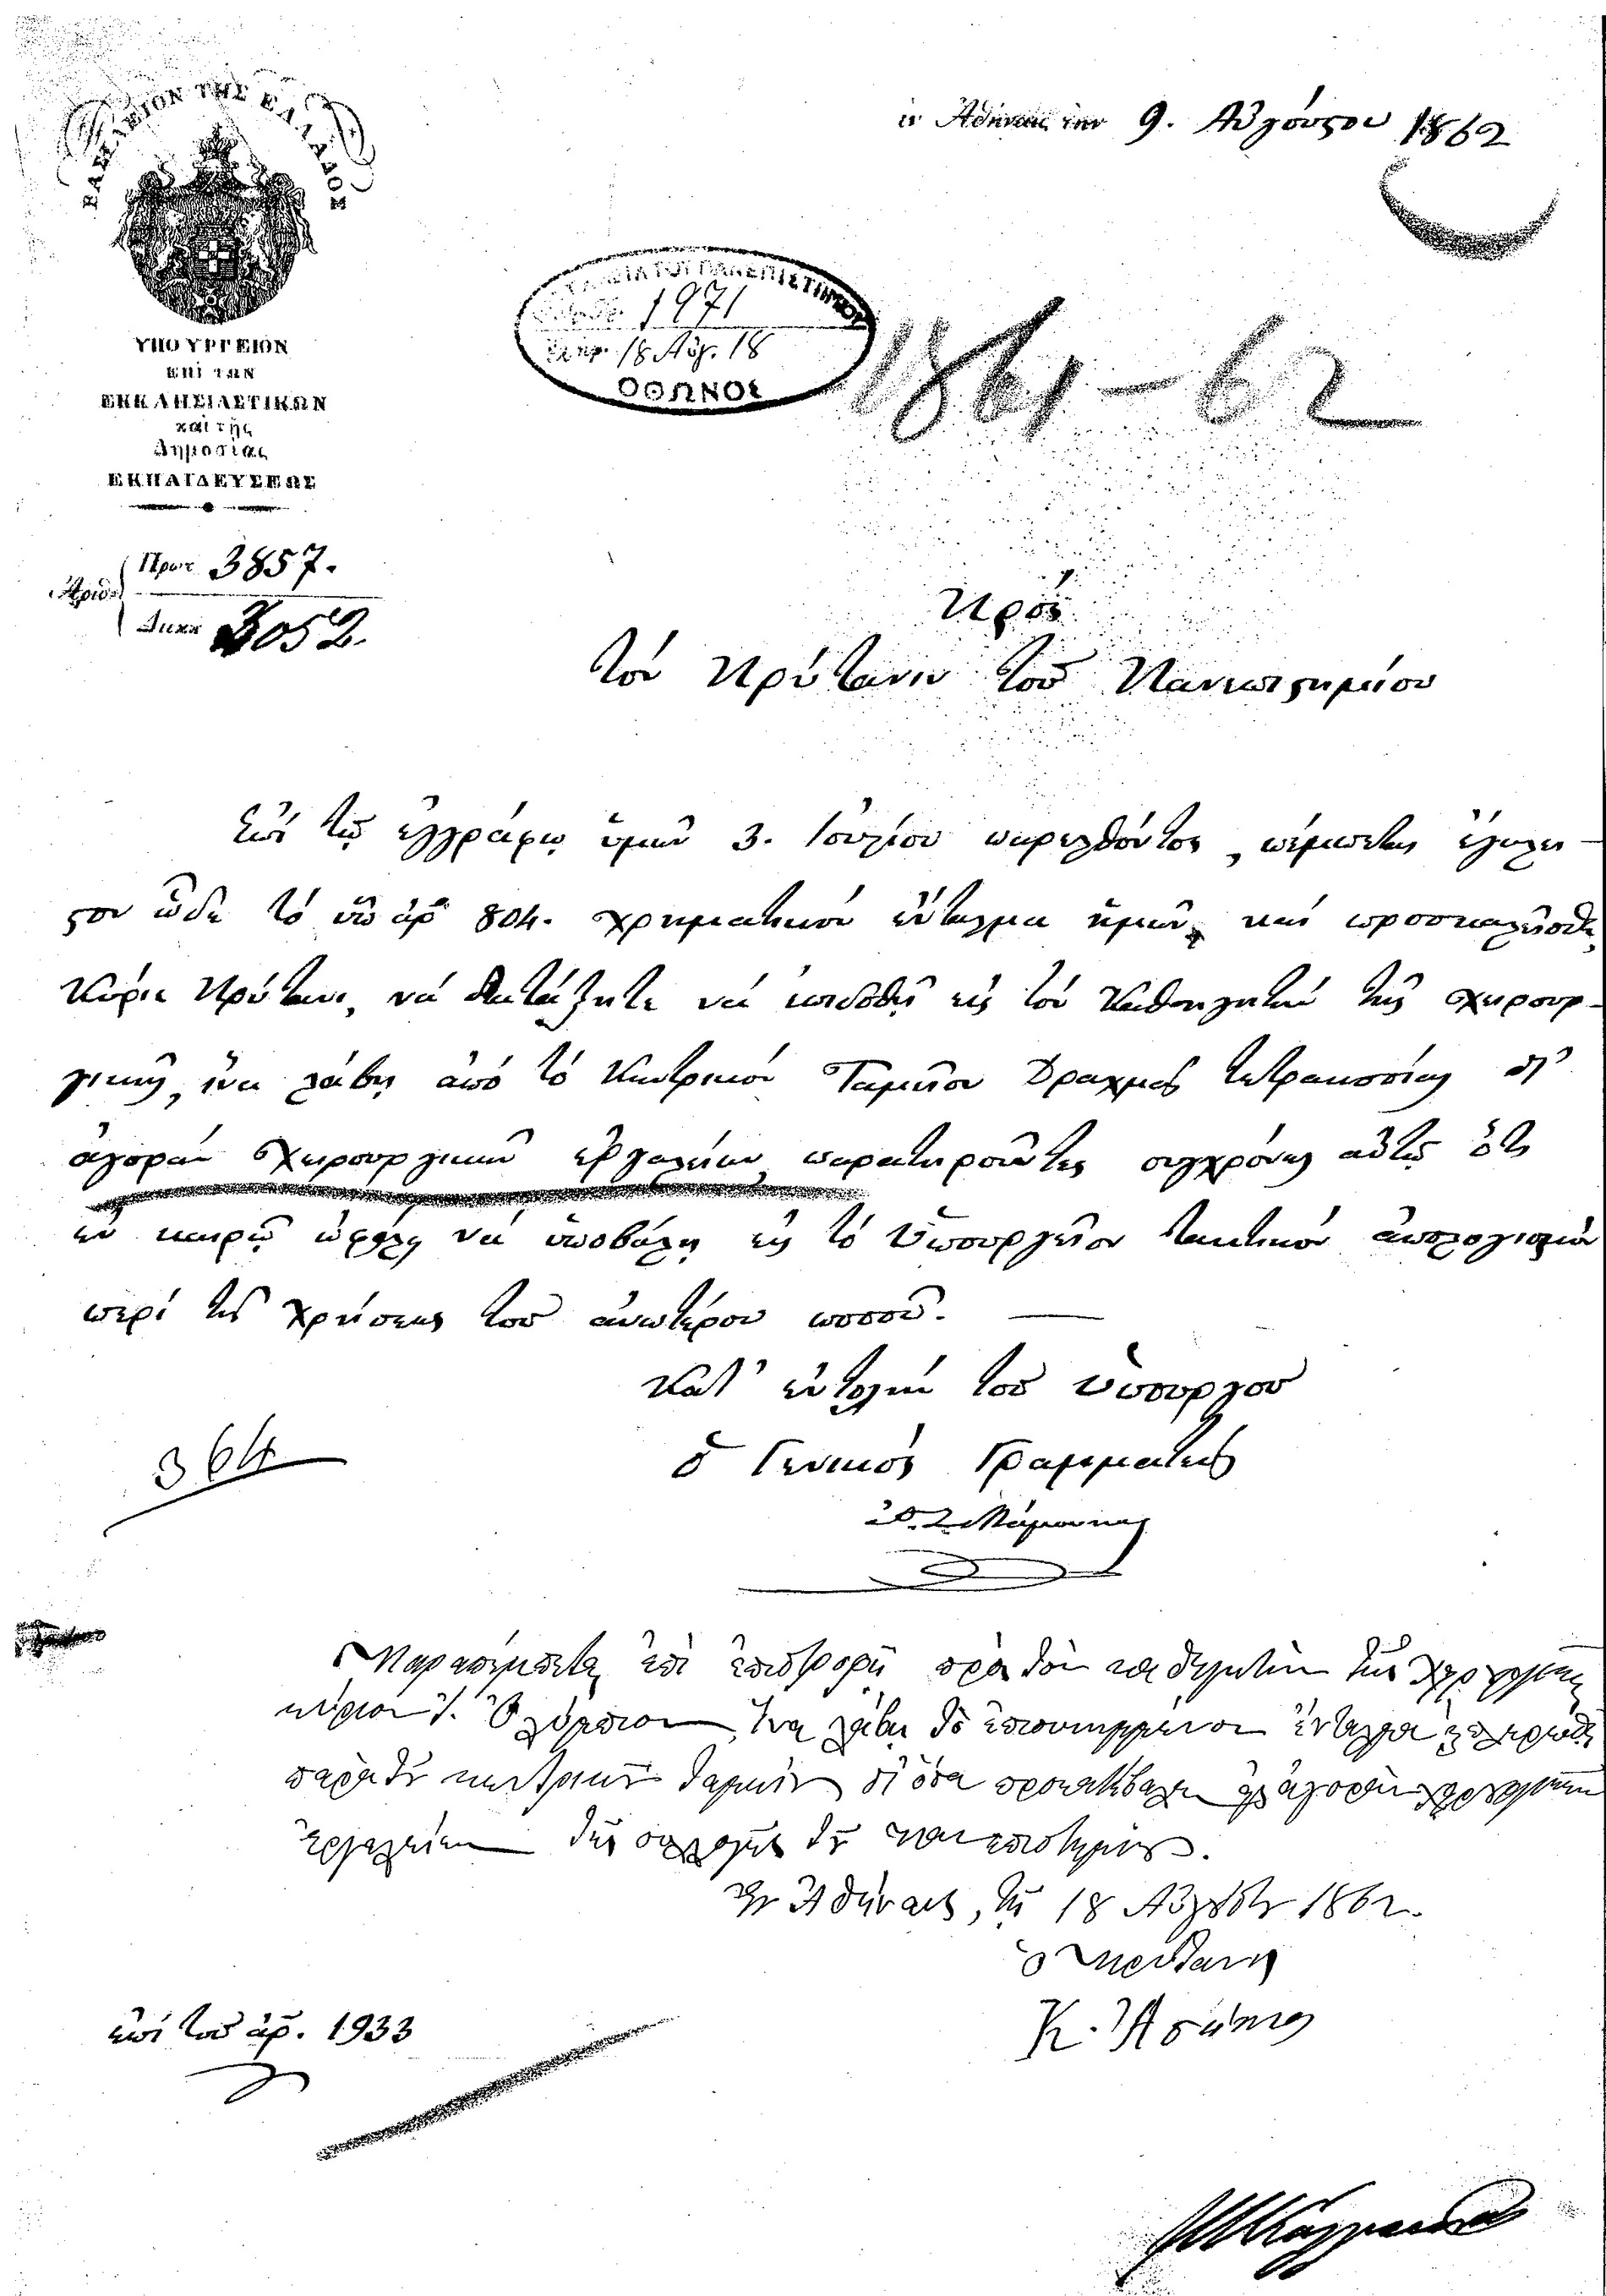 ΒΑΣΙΛΕΙΟΝ ΤΗΣ ΕΛΛΑΔΟΣ
ἐν Ἀθήναις την 9. Αὐγούστου 1862
ΤΟΥ ΠΑΝΕΠΙΣΤΗΜΙΟΥ
1971
18 Αὐγ. 18
ΟΘΩΝΟΣ
1861-62
ΥΠΟΥΡΓΕΙΟΝ
ΕΠΙ ΤΩΝ
ΕΚΚΛΗΣΙΑΣΤΙΚΩΝ
καὶ τῆς
Δημοσίας
ΕΚΠΑΙΔΕΥΣΕΩΣ
Ἀριθ.
Πρωτ 3857.
Διεκπ 3052.
Πρὸς
τὸν Πρύτανιν τοῦ Πανεπιστημίου
Ἐπὶ τῷ ἐγγράφῳ ὑμῶν 3. Ἰουλίου παρελθόντος, πέμποντες ἔγκλει-
στον ὧδε τὸ ὑπ' ἀρ 804. χρηματικὸν ἔνταλμα ἡμῶν, καὶ προσκαλεῖσθε,
Κύριε Πρύτανι, νὰ διατάξητε νὰ ἐπιδοθῇ εἰς τὸν Καθηγητὴν τῆς χειρουρ-
γικῆς, ἵνα λάβῃ ἀπὸ τὸ Κεντρικὸν Ταμεῖον Δραχμὰς τετρακοσίας δι'
ἀγορὰν χειρουργικῶν ἐργαλείων, παρατηροῦντες συγχρόνως αὐτῷ ὅτι
ἐν καιρῷ ὠφείλει νὰ ὑποβάλῃ εἰς τὸ Ὑπουργεῖον τακτικὸν ἀπολογισμὸν
περὶ τῆς χρήσεως τοῦ ἀνωτέρου ποσοῦ.
Κατ' ἐντολὴν τοῦ Ὑπουργοῦ
ὁ Γενικὸς Γραμματεὺς
364
Παραπέμπεται ἐπὶ ἐπιστροφῇ πρὸς τὸν καθηγητὴν τῆς χειρουργικῆς
κύριον Ἰ. Ὀλύμπιον, ἵνα λάβῃ τὸ ἐπισυνημμένον ἔνταλμα
παρὰ τοῦ κεντρικοῦ ταμείου δι' ὅσα ἀγορὰν χειρουργικῶν
ἐργαλείων τῆς συλλογῆς τοῦ πανεπιστημίου.
Ἐν Ἀθήναις, τῇ 18 Αὐγούστου 1862.
ὁ Πρύτανις
Κ. Ἀσώπιος
ἐπὶ τοῦ ἀρ. 1933